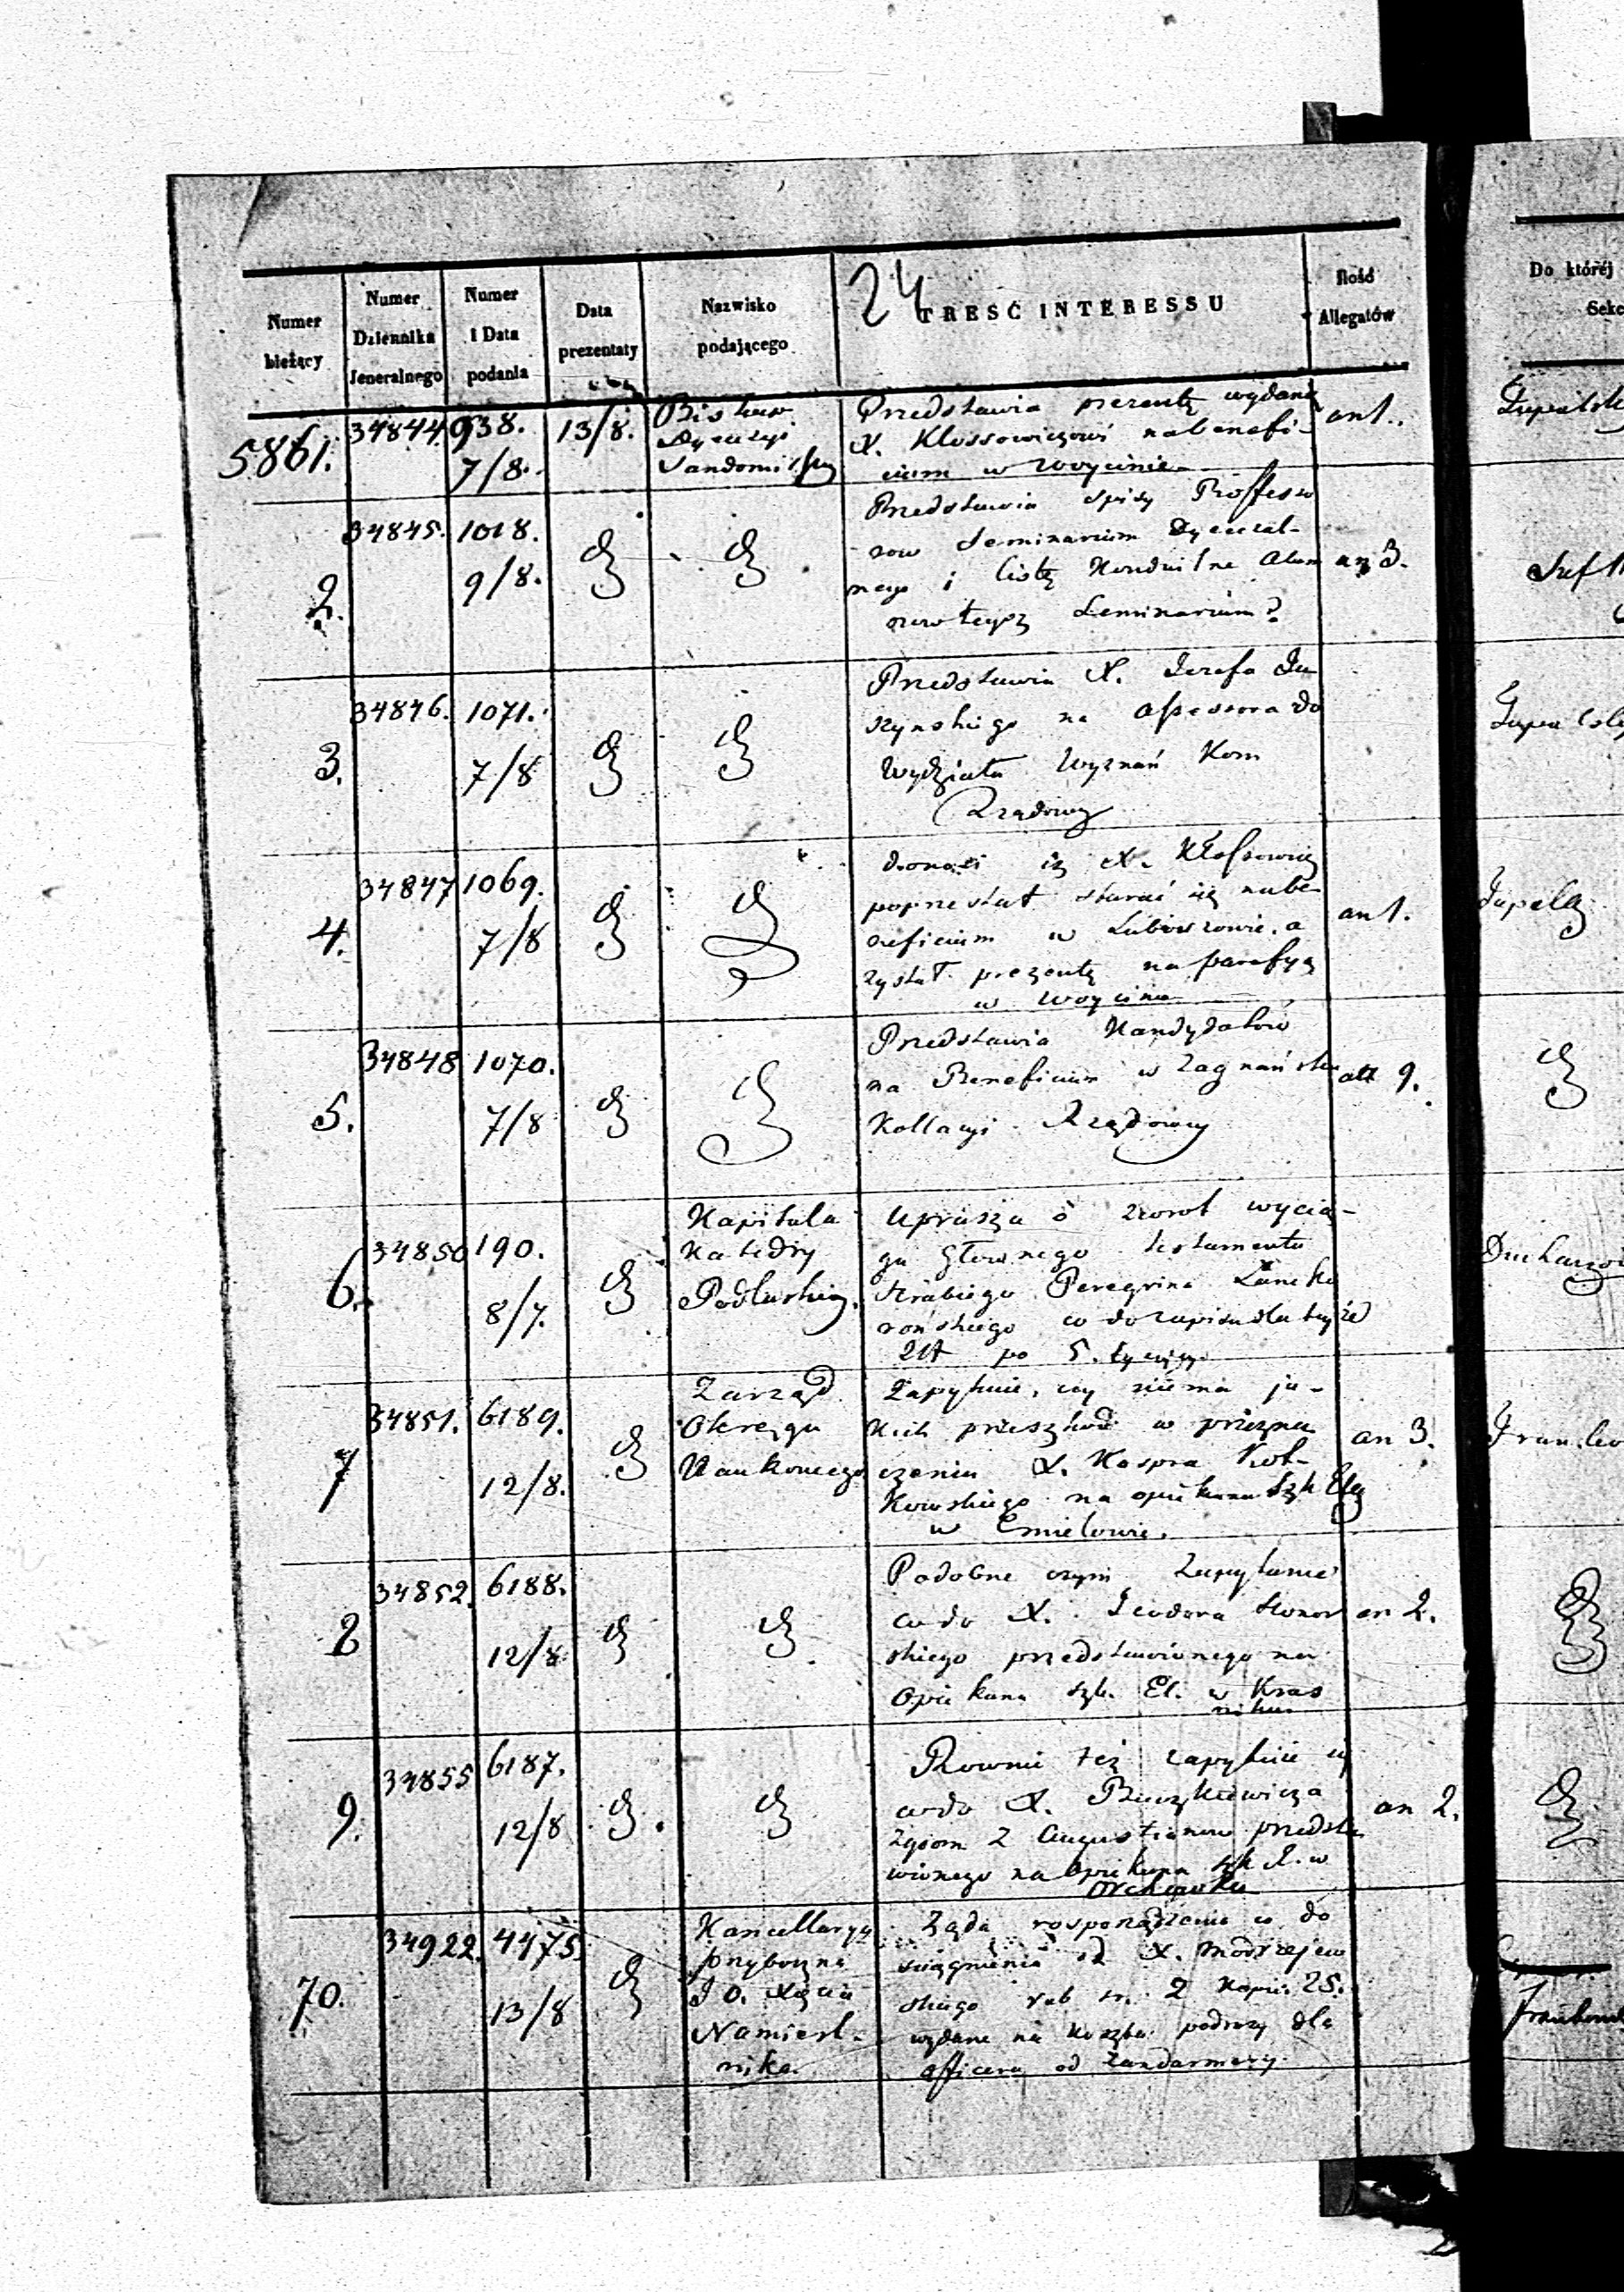 24
Numer bieżący
Numer Dziennika Jeneralnego
Numer i Data podania
Data prezentaty
Nazwisko podającego
TREŚĆ INTERESSU
Ilość Allegatów
Do któréj
Sekc
5861. 34844. 938. 7/8. 13/8.
Biskup
Dyecezyi
Sandomirskiej
Przedstawia prezentę wydaną
X. Klossowiczowi na benefi-
cium w Woycinie
an 1.
2. 34845. 1018. 9/8.
Przedstawia spisy Professo
row Seminarium Dyecezal-
nego i listę Konduitną Alum
nów tegoż Seminarium
an 3.
3. 34846. 1071. 7/8
Przedstawia X. Jozefa Ju
szynskiego na Assessora do
Wydziału Wyznań Kom
Rządowej
4. 34847 1069. 7/8
donosi iż X. Kłossowicz
poprzestał starać się na be-
neficium w Luboszowie, a
zyskał prezentę na parafyą
w Woycinie
an 1.
5. 34848 1070. 7/8
Przedstawia Kandydatów
na Beneficium w Zagnańsku
Kollacyi Rządowey
all 9.
6. 34850 190. 8/7.
Kapituła
Katedry
Podlaskiej
Uprasza o zwrot wycią-
gu Głownego testamentu
Hrabiego Peregrina
co do zapisu dla tejże
Złt po 5. tysięcy
7 34851. 6189. 12/8.
Zarząd
Okręgu
Naukowego
Zapytuie, czy niema ja-
kich przeszkod w przezna
czeniu X. Kaspra
na opiekuna Szk Elg
w Cmielowie.
an 3.
8 34852. 6188. 12/8
Podobne czyni Zapytanie
co do X. Teodora
skiego przedstawionego na
Opiekuna szk. El. w Kras
niku
an 2.
9. 34855 6187. 12/8
Rownie też zapytuie się
co do X. Buczkiewicza
Zgrom Z Augustianow przedsta
wionego na Opiekuna szk E. w
Orchowku
an 2.
70. 34922. 4475. 13/8
Kancellarya
przyboczna
J O. Xięcia
Namiest-
nika
Żąda rosporządzenia co do
sciągnienia od X. Modrzejew
skiego rub sr. 2 kopi. 25.
wydane na koszta podroży dla
officera od żandarmeryi